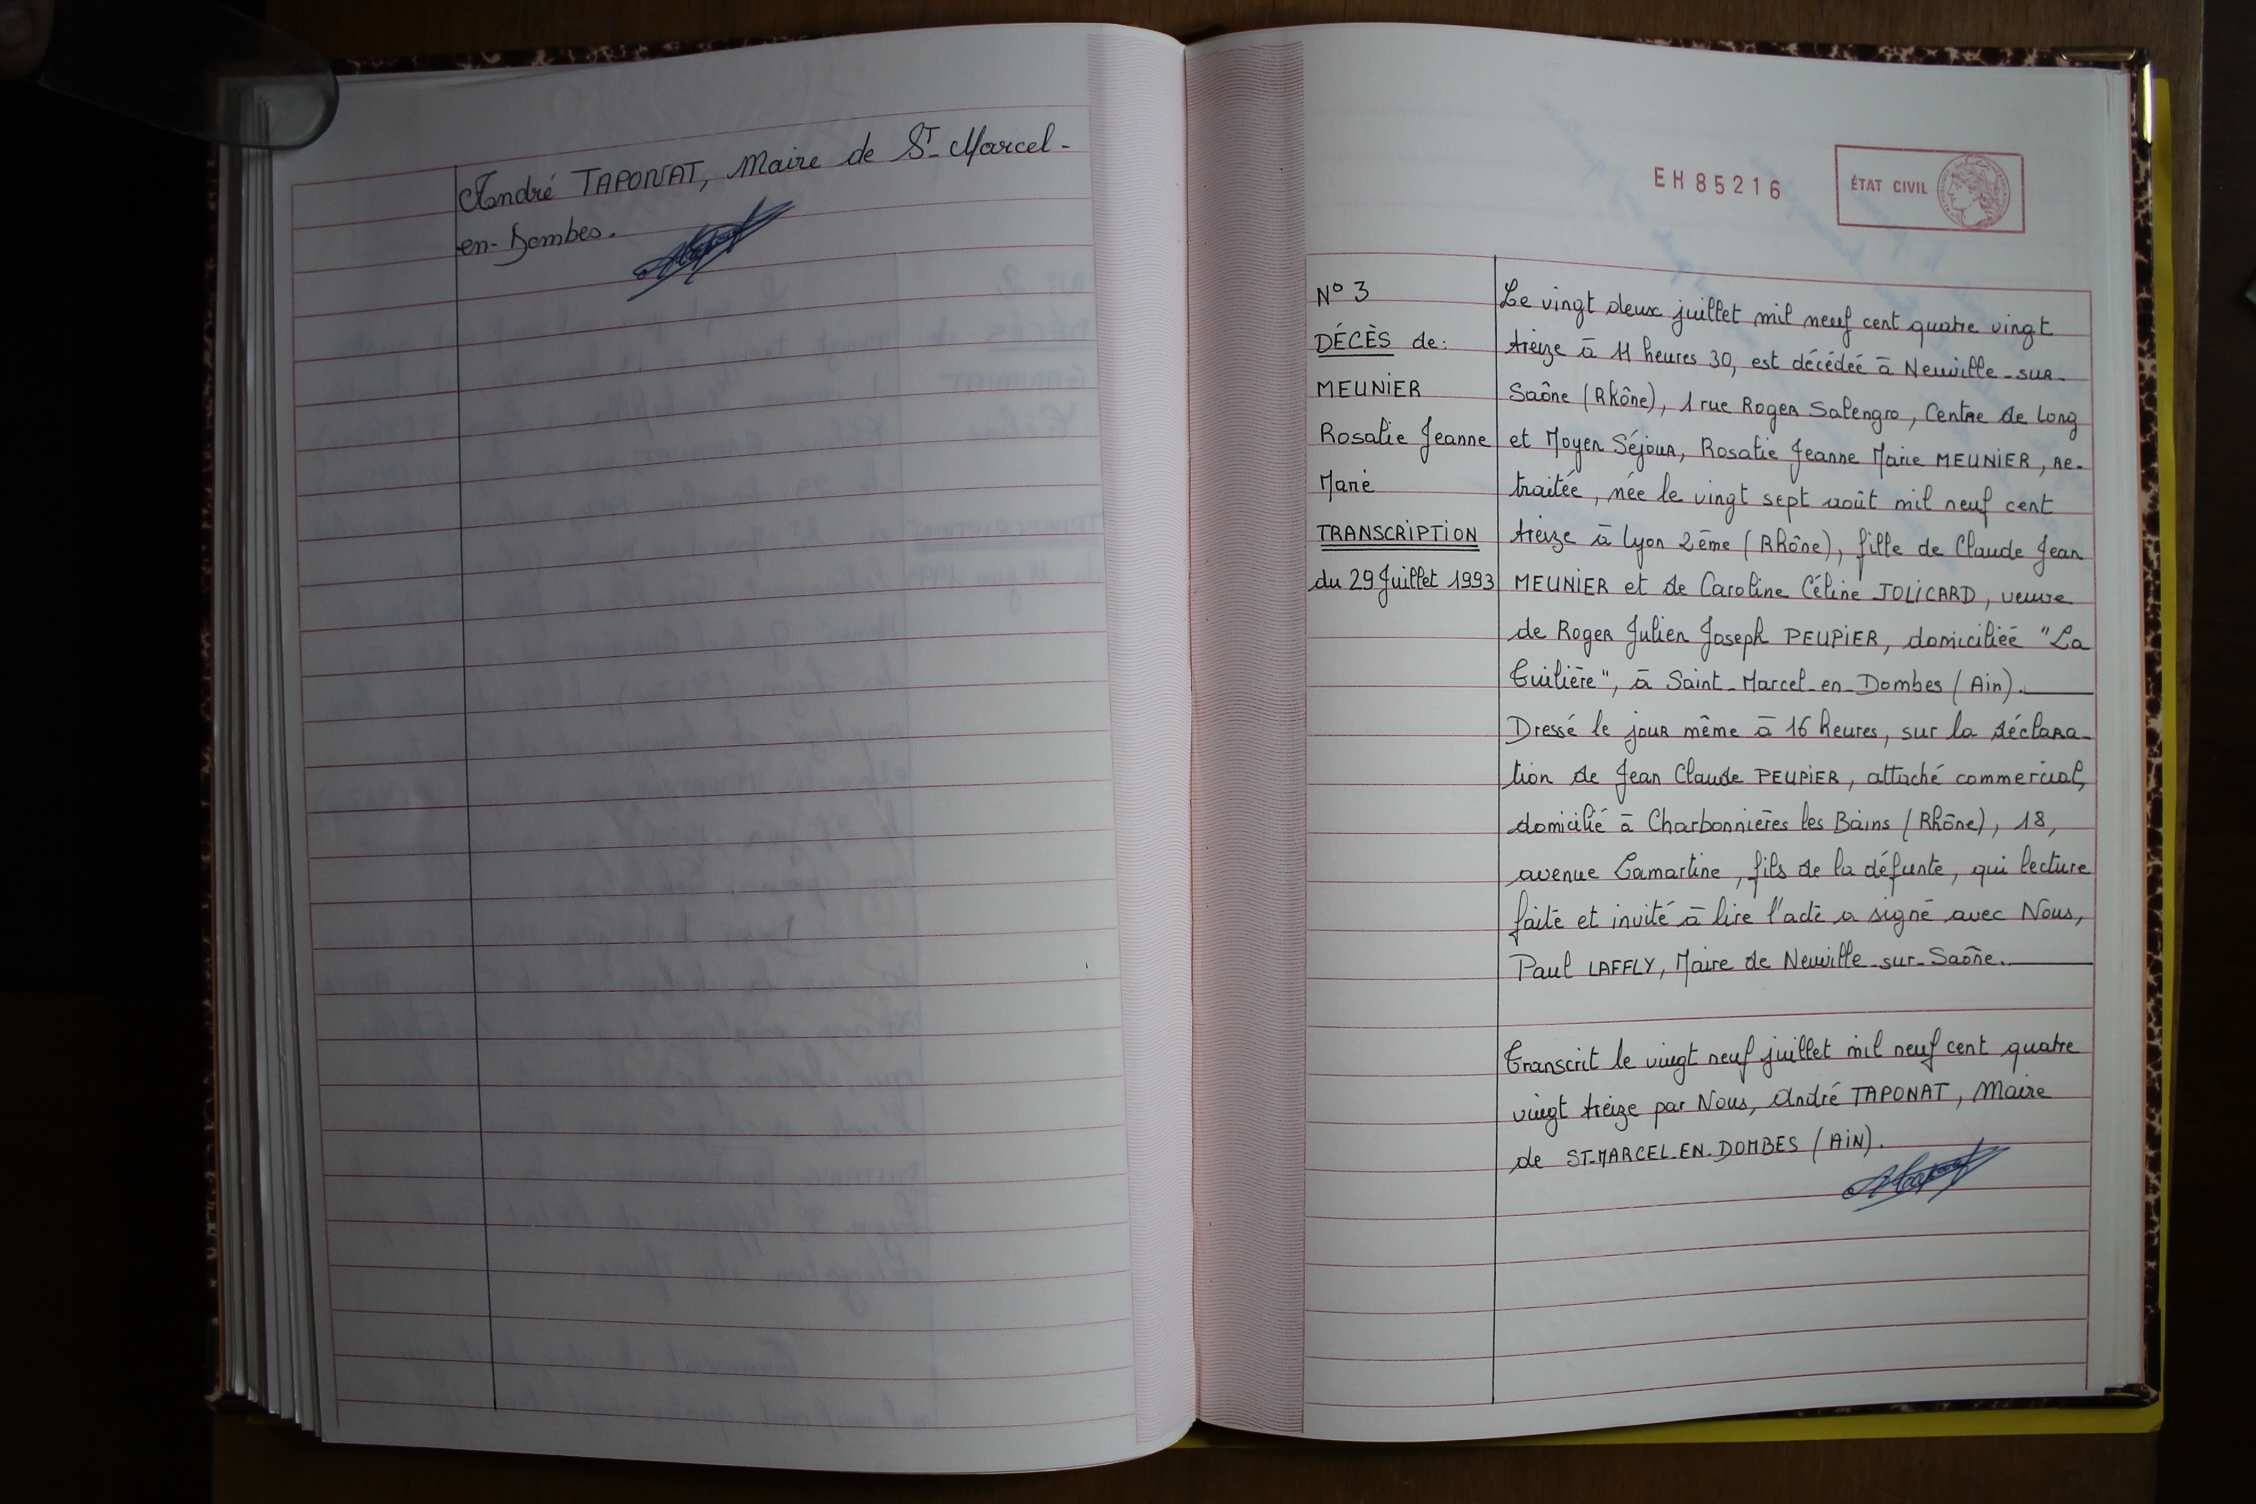 André TAPONAT, Maire de St-Marcel-
en-Dombes.
EH85216
ÉTAT CIVIL
N° 3
DÉCÈS de:
MEUNIER
Rosalie Jeanne
Marie
TRANSCRIPTION
du 29 Juillet 1993
Le vingt deux juillet mil neuf cent quatre vingt
treize à 11 heures 30, est décédée à Neuville-sur-
Saône (Rhône), 1 rue Roger Salengro, Centre de Long
et Moyen Séjour, Rosalie Jeanne Marie MEUNIER, re-
traitée, née le vingt sept août mil neuf cent
treize à Lyon 2ème (Rhône), fille de Claude Jean
MEUNIER et de Caroline Céline JOLICARD, veuve
de Roger Julien Joseph PEUPIER, domiciliée "La
Tuilière", à Saint-Marcel-en-Dombes (Ain).
Dressé le jour même à 16 heures, sur la déclara-
tion de Jean Claude PEUPIER, attaché commercial,
domicilié à Charbonnières les Bains (Rhône), 18,
avenue Lamartine, fils de la défunte, qui lecture
faite et invité à lire l'acte a signé avec Nous,
Paul LAFFLY, Maire de Neuville-sur-Saône.
Transcrit le vingt neuf juillet mil neuf cent quatre
vingt treize par Nous, André TAPONAT, Maire
de ST-MARCEL-EN-DOMBES (AIN).